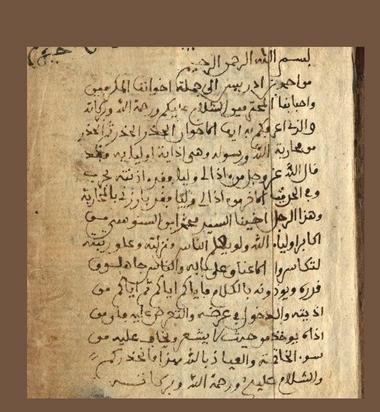 بسم الله الرحمن الرحيم
من احمد بن ادريس الى جملة اخواننا المكرمين
واحبابنا المحترمين السلام عليكم ورحمة الله وبركاته
والذي اعرفكم به ايها الاخوان الحذر الحذر ثم الحذر
من محاربة الله ورسوله وهي اذاية اوليايه فقد
قال الله عز وجل من اذا لي وليا فقد اذنته بحرب
وفي الحديث الاخر من اذا لي وليا فقد بارزني بالمحاربة
وهذا الرجل اخينا السيد محمد ابن السنوسي من
اكابر اولياء الله ولو يعلم الناس منزلته وعلو رتبته
لتكاسروا على بابه والناس جاهلون
قدره ويوذونه بالكلام فاياكم اياكم ثم اياكم من
اذيته والدخول في عرضه والتعرض عليه فان من
اذاه يوخذ من حيث لا يشعر ويخاف عليه من
سوء الخاتمة والعياذ بالله من هذا فالحذركم
والسلام عليكم ورحمة الله وبركاته